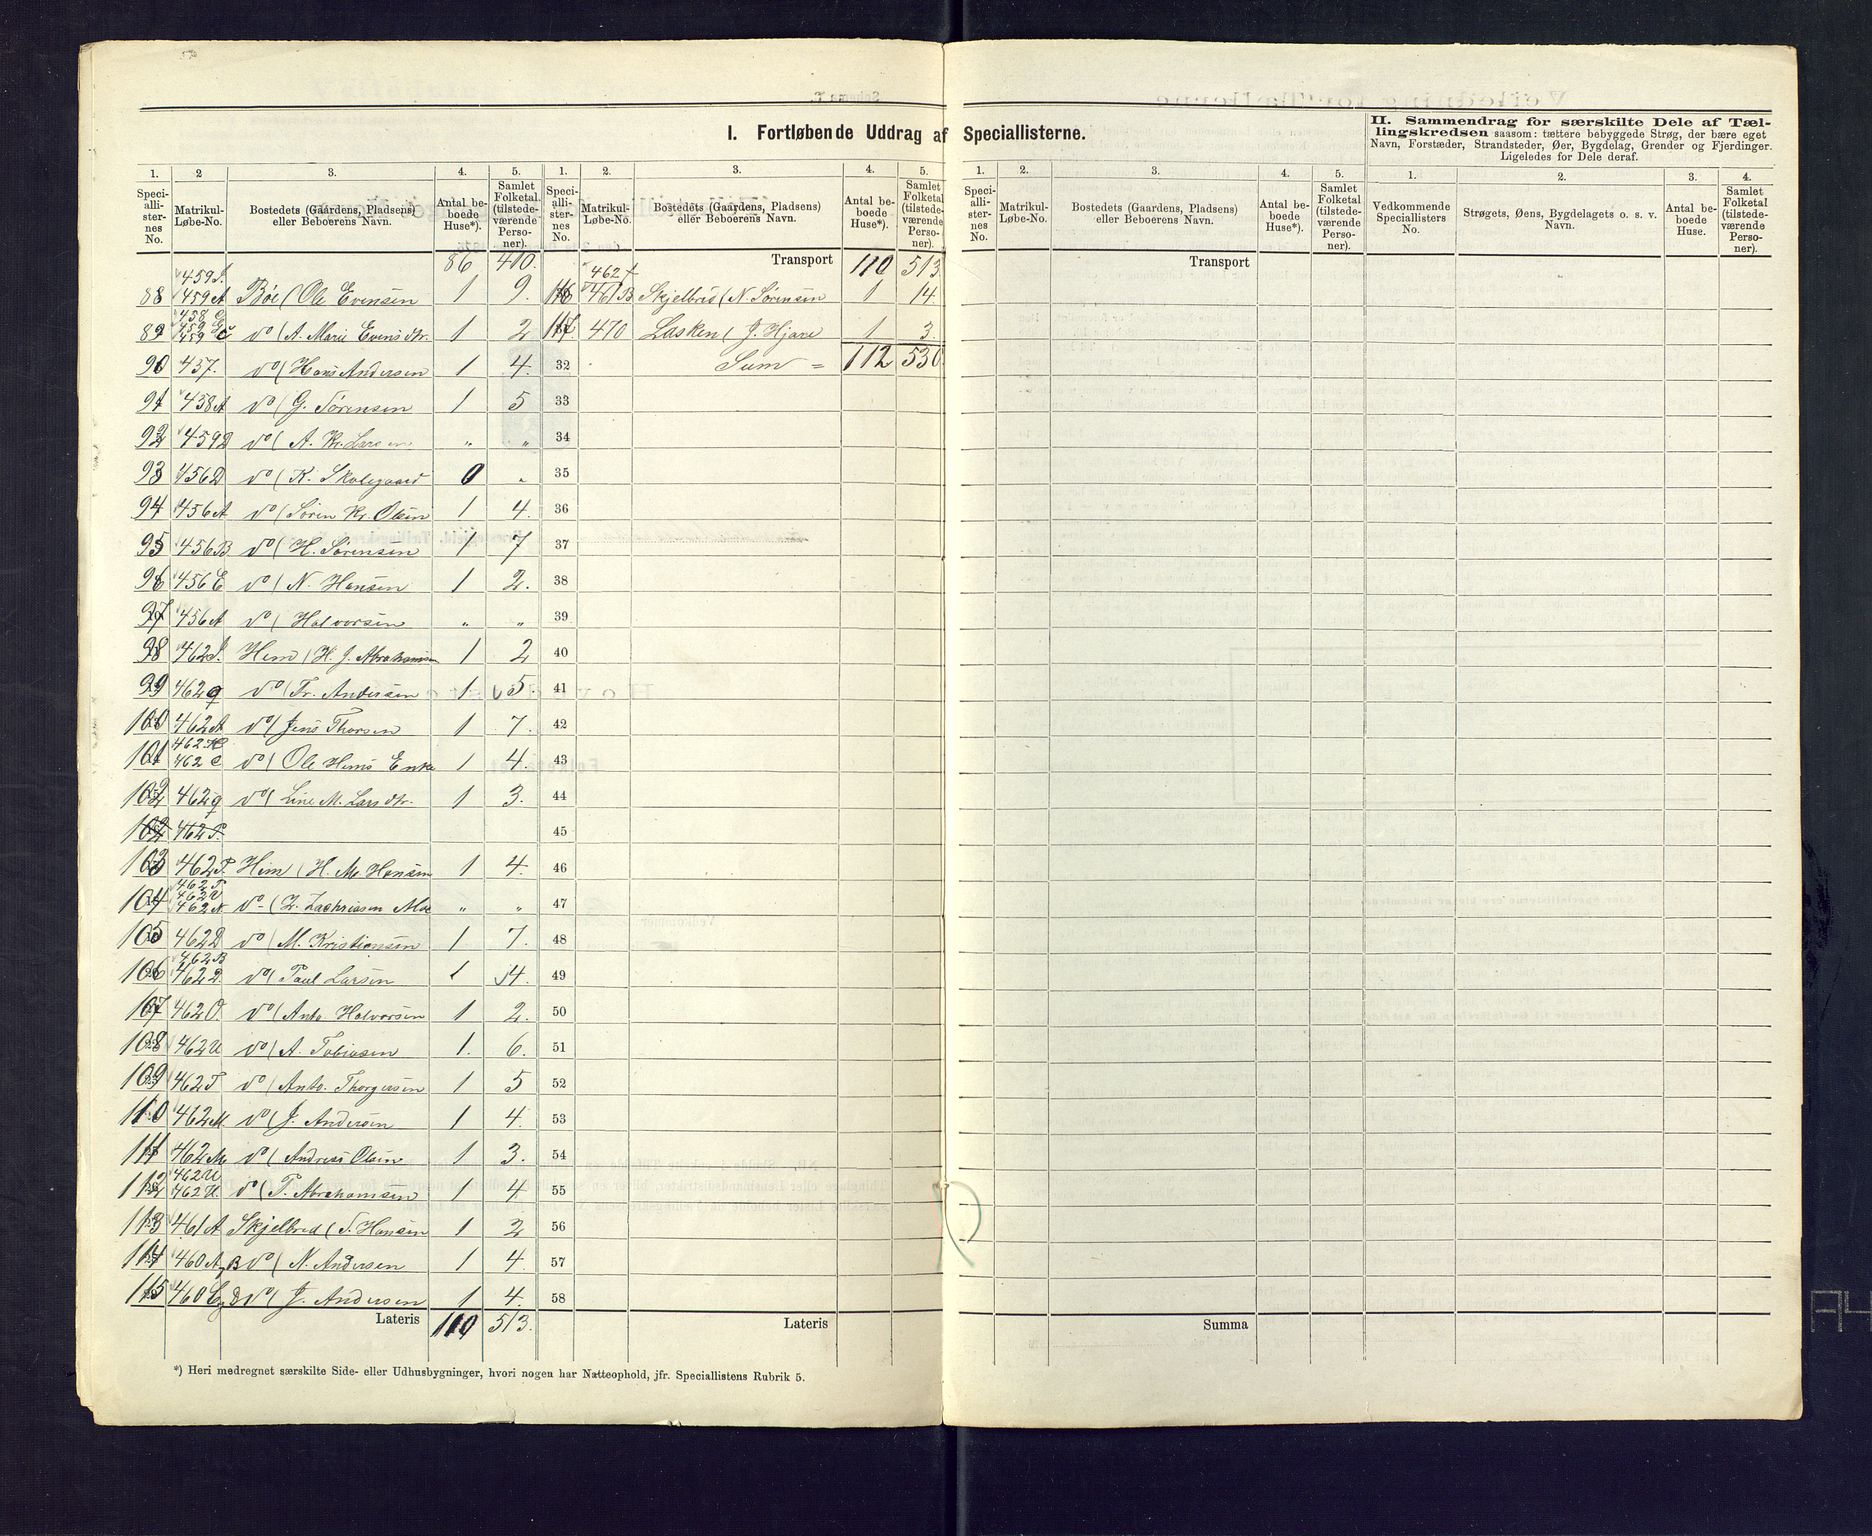 I. Fortløbende Uddrag af Speciallisterne.
II. Sammendrag for særskilte Dele af Tællingskredsen saasom: tættere bebyggede Strøg, der bære eget
Navn, Forstæder, Strandsteder, Øer, Bygdelag, Grender og Fjerdinger.
Ligeledes for Dele deraf.
1. 2 3. 4. 5.
Speciallisternes No. Matrikul-Løbe-No. Bostedets (Gaardens, Pladsens) eller Beboerens Navn. Antal beboede Huse*). Samlet Folketal (tilstedeværende Personer).
86 410.
459
88 459A Bøe (Ole Evensen 1 9.
458
459
89 459 c do (A. Marie Evensdtr. 1 2
90 437. do (Hans Andersen 1 4.
91 458A do (G. Sørensen 1 5
92 459D do (A. Kr. Larsen " "
93 456D do (K. Skolegaard 0 "
94 456A do (Søren Kr. Olsen 1 4.
95 456B do (H. Sørensen 1 7
96 456E do (N. Hansen 1 2.
97 456A do (Halvorsen " "
98 462 Hem (H. J. Abrahamsen 1 2
99 462q do (Tr. Andersen 1 5.
100 462A do (Jens Thorsen 1 7.
462
101 462 C do (Ole Hems Enke 1 4.
102 462q do (Line M. Larsdtr. 1 3.
102 462P.
103 462P. Hem (H. M. Hansen 1 4.
462
462U
104 462N do (Z. Zachriasen Moe " "
105 462D do (M. Kristiansen 1 7.
462B
106 462D. do (Paul Larsen 1 4.
107 462O. do (Anto Halvorsen 1 2.
108 462U do (A. Tobiasen 1. 6.
109 462T do (Anto. Thorgersen 1 5
110 462M. do (J. Andersen 1 4.
111 462M do (Andreas Olsen 1 3.
462U
112 462 do (T. Abrahamsen 1 4
113 461A Skjelbred (S. Hansen 1 2
114 460A,B do (N. Andersen 1 4.
115 460C,D do (J. Andersen 1 4.
Lateris 110 513.
1. 2. 3. 4. 5.
Speciallisternes No. Matrikul-Løbe-No. Bostedets (Gaardens, Pladsens) eller Beboerens Navn. Antal beboede Huse*). Samlet Folketal (tilstedeværende Personer).
Transport 110 513
462
116 461B Skjelbred (N. Sørensen 1 14.
117 470 Lasken (J. Hjare 1 3.
32 Sum = 112 530
33
34
35
36
37
38
39
40
41
42
43
44
45
46
47
48
49
50
51
52
53
54
55
56
57
58
Lateris
1. 2. 3. 4. 5.
Speciallisternes No. Matrikul-Løbe-No. Bostedets (Gaardens, Pladsens) eller Beboerens Navn. Antal beboede Huse*). Samlet Folketal (tilstedeværende Personer).
Transport
Summa
1. 2. 3. 4.
Vedkommende Speciallisters No. Strøgets, Øens, Bygdelagets o. s. v. Navn. Antal beboede Huse. Samlet Folketal (tilstedeværende Personer).
*) Heri medregnet særskilte Side- eller Udhusbygninger, hvori nogen har Natteophold, jfr. Speciallistens Rubrik 5.